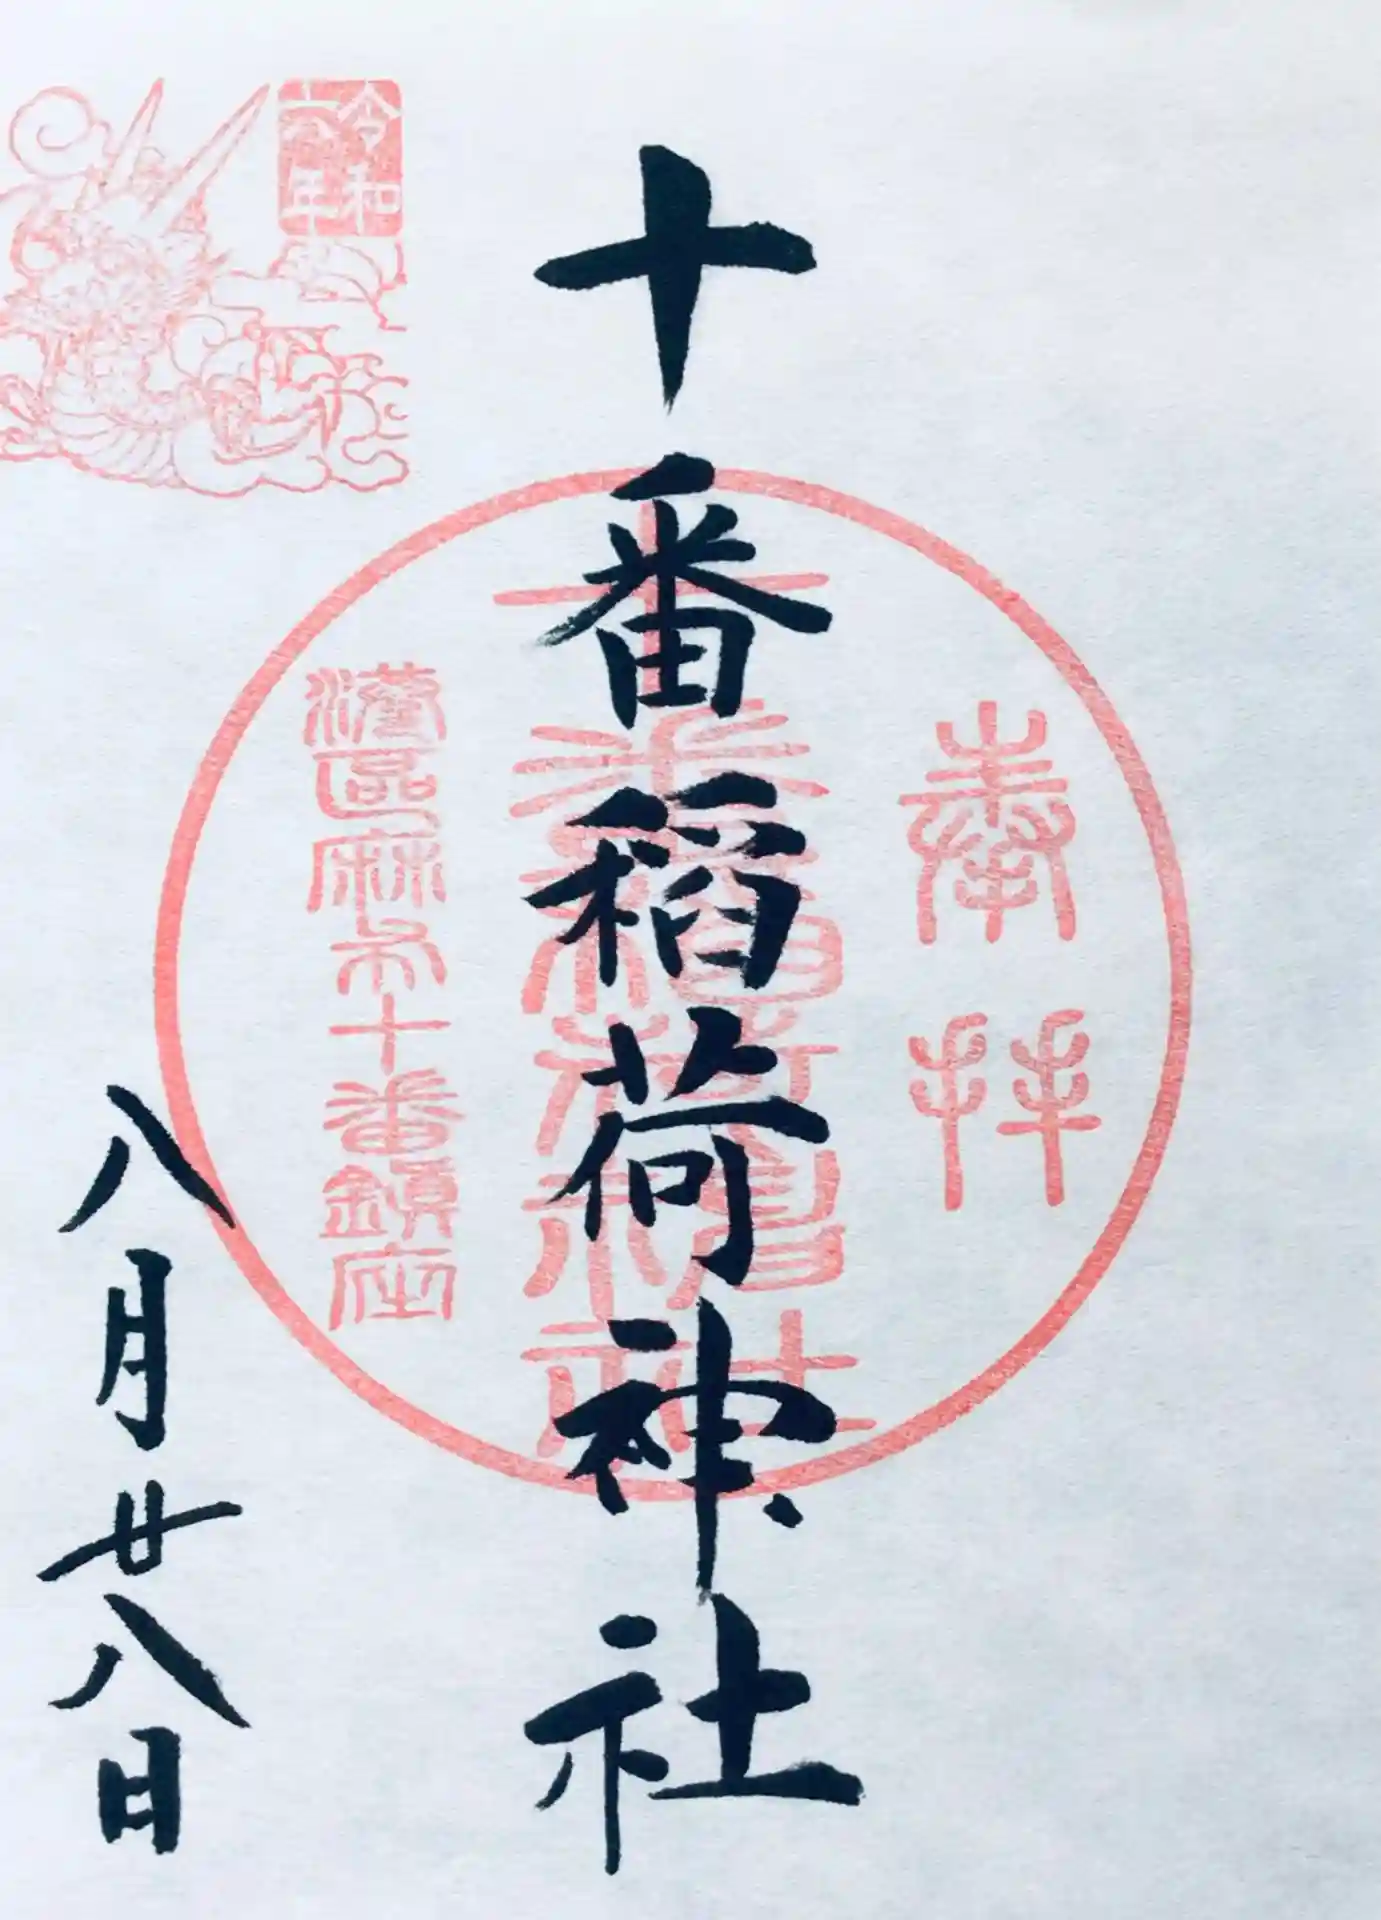 奉拝
十番稲荷神社
十番稲荷神社
港區麻布十番鎮座
令和六年
八月廿八日